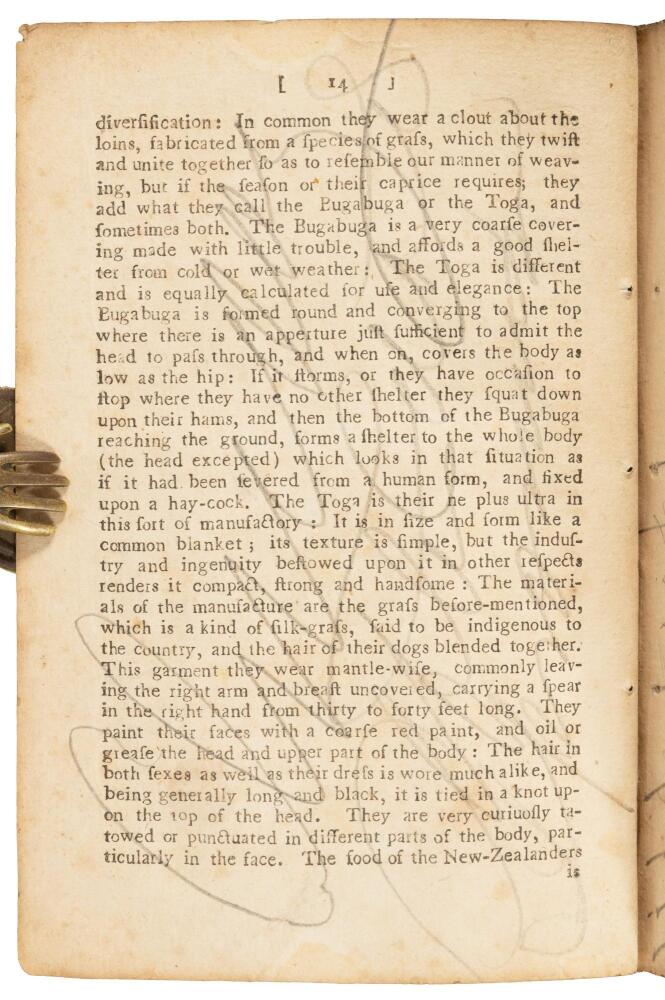 [ 14 ]
diverſification: In common they wear a clout about the
loins, fabricated from a ſpecies of graſs, which they twiſt
and unite together ſo as to reſemble our manner of weav-
ing, but if the ſeaſon or their caprice requires; they
add what they call the Bugabuga or the Toga, and
ſometimes both. The Bugabuga is a very coarſe cover-
ing made with little trouble, and affords a good ſhel-
ter from cold or wet weather: The Toga is different
and is equally calculated for uſe and elegance: The
Bugabuga is formed round and converging to the top
where there is an apperture juſt ſufficient to admit the
head to paſs through, and when on, covers the body as
low as the hip: If it ſtorms, or they have occaſion to
ſtop where they have no other ſhelter they ſquat down
upon their hams, and then the bottom of the Bugabuga
reaching the ground, forms a ſhelter to the whole body
(the head excepted) which looks in that ſituation as
if it had been ſevered from a human form, and fixed
upon a hay-cock. The Toga is their ne plus ultra in
this ſort of manufactory : It is in ſize and form like a
common blanket ; its texture is ſimple, but the induſ-
try and ingenuity beſtowed upon it in other reſpects
renders it compact, ſtrong and handſome : The materi-
als of the manufacture are the graſs before-mentioned,
which is a kind of ſilk-graſs, ſaid to be indigenous to
the country, and the hair of their dogs blended together.
This garment they wear mantle-wiſe, commonly leav-
ing the right arm and breaſt uncovered, carrying a ſpear
in the right hand from thirty to forty feet long. They
paint their faces with a coarſe red paint, and oil or
greaſe the head and upper part of the body : The hair in
both ſexes as well as their dreſs is wore much alike, and
being generally long and black, it is tied in a knot up-
on the top of the head. They are very curiuoſly ta-
towed or punctuated in different parts of the body, par-
ticularly in the face. The food of the New-Zealanders
is